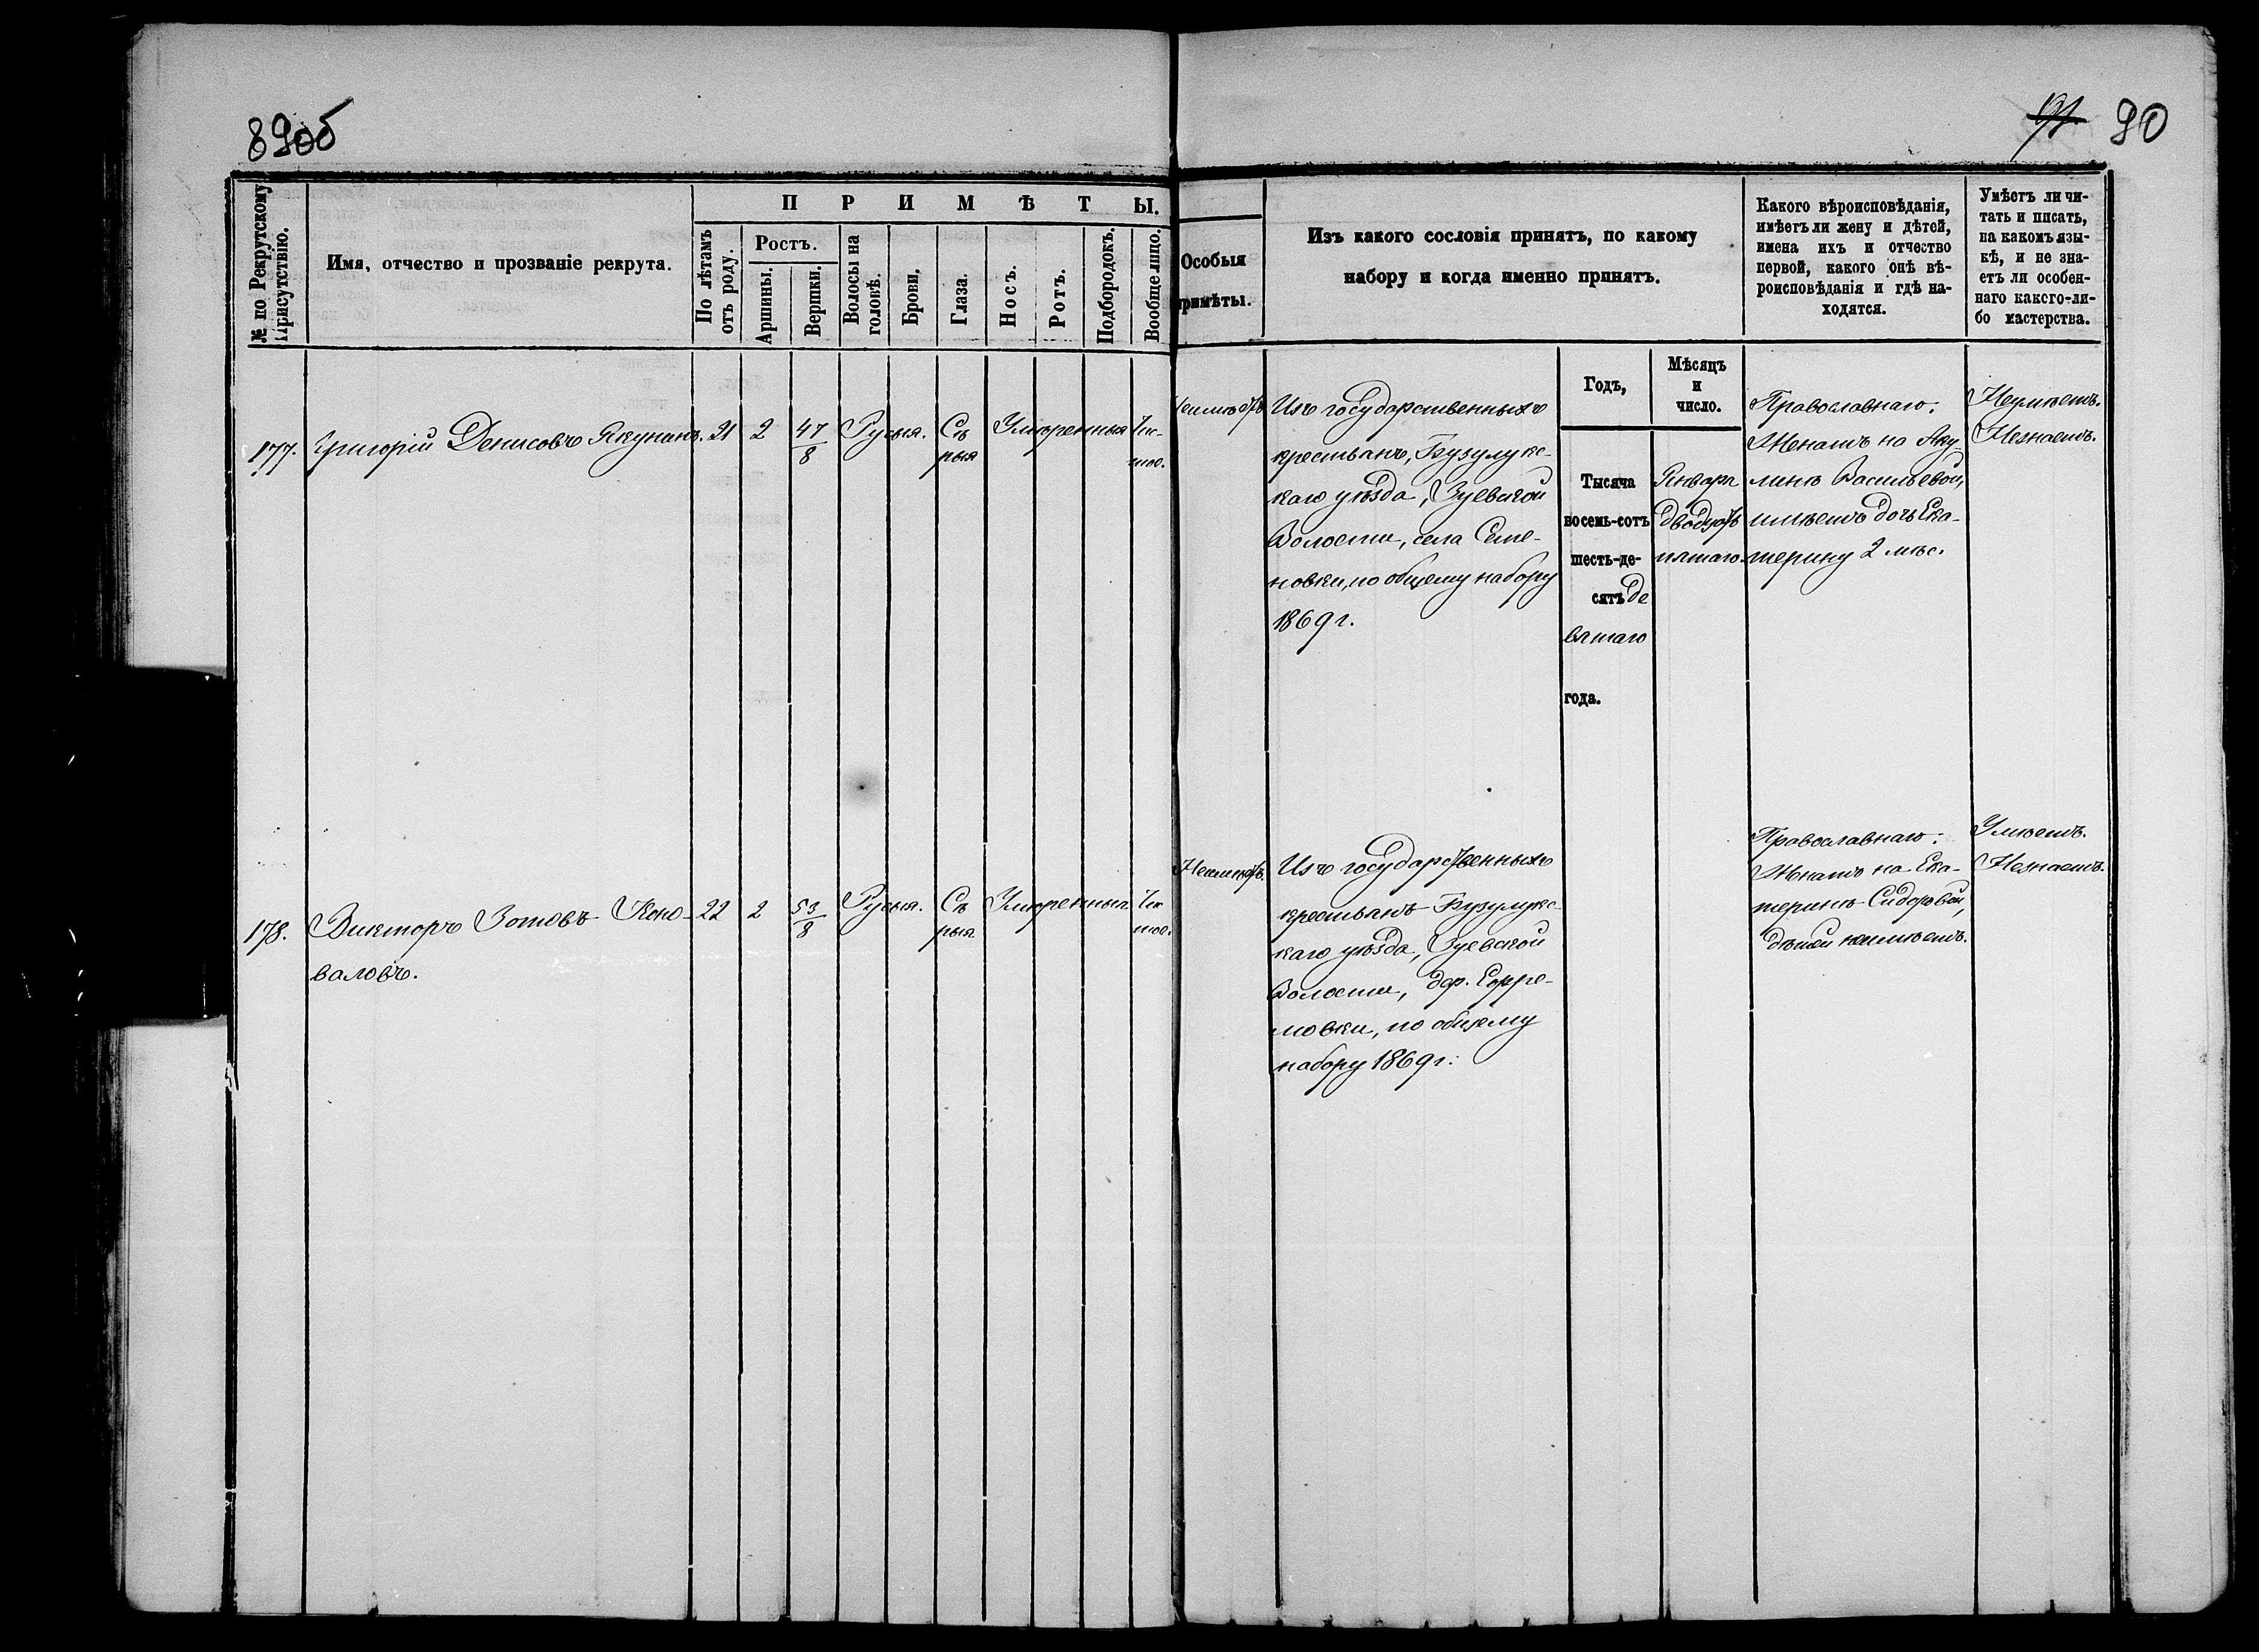 89об
91 90
№ по Рекрутскому Присутствію.
Имя, отчество и прозваніе рекрута.
ПРИМѢТЫ.
По лѣтамъ отъ роду.
Ростъ.
Аршины.
Вершки.
Волосы на головѣ.
Брови.
Глаза.
Носъ.
Ротъ.
Подбородокъ.
Вообще лицо.
Особыя
примѣты.
Изъ какого сословія принятъ, по какому
набору и когда именно принятъ.
Какого вѣроисповѣданія,
имѣетъ ли жену и дѣтей,
имена ихъ и отчество
первой, какого онѣ вѣ-
роисповѣданія и гдѣ на-
ходятся.
Умѣетъ ли чи-
тать и писать,
на какомъ язы-
кѣ, и не зна-
етъ ли особен-
наго какого-ли-
бо мастерства.
Годъ,
Мѣсяцъ
и
число.
177. Григорій Денисовъ Якунинъ. 21 2 4 7/8 Русыя. Сѣ
рыя Умѣренныя Чис-
тое.
Неимѣетъ
Изъ государственныхъ
крестьянъ, Бузулукс-
каго уѣзда, Зуевской
Волости, села Семе-
новки, по общему набору
1869 г.
Тысяча
восемь-сотъ
шесть-де-
сятъ де
вятаго
года.
Января
двадцать
пятаго.
Православнаго.
Женатъ на Аку
линѣ Васильевой,
имѣетъ дочь Ека-
терину 2 мѣс.
Неумѣетъ.
Незнаетъ.
178. Викторъ Зотовъ Коно-
валовъ.
22 2 5 3/8 Русыя. Сѣ
рыя Умѣренныя Чис
тое.
Неимѣетъ.
Изъ государственныхъ
крестьянъ Бузулукс-
каго уѣзда, Зуевской
Волости, дер. Ефре-
мовки, по общему
набору 1869 г.
Православнаго.
Женатъ на Ека-
теринѣ Сидоровой,
дѣтей неимѣетъ.
Умѣетъ.
Незнаетъ.